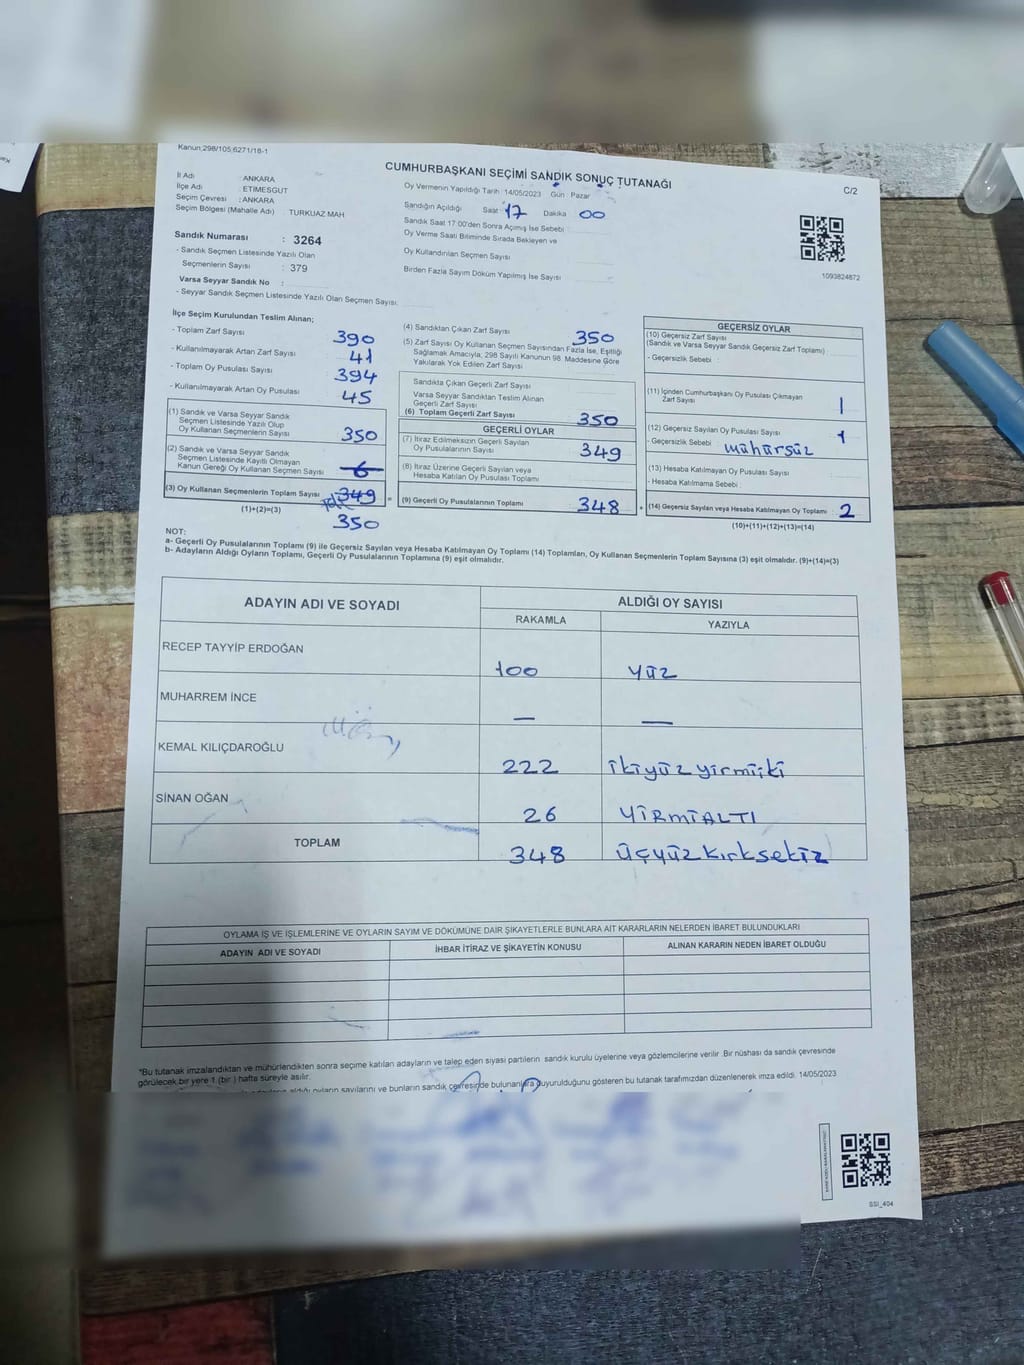 Kanun;298/105;6271/18-1
CUMHURBAŞKANI SEÇİMİ SANDIK SONUÇ TUTANAĞI
C/2
İl Adı : ANKARA
İlçe Adı : ETİMESGUT
Seçim Çevresi : ANKARA
Seçim Bölgesi (Mahalle Adı) : TURKUAZ MAH
Oy Vermenin Yapıldığı Tarih : 14/05/2023 Gün : Pazar
Sandığın Açıldığı Saat : 17 Dakika 00
Sandık Saat 17:00'den Sonra Açımış İse Sebebi :
Oy Verme Saati Bitiminde Sırada Bekleyen ve
Oy Kullandırılan Seçmen Sayısı
Birden Fazla Sayım Döküm Yapılmış İse Sayısı
1093824872
Sandık Numarası : 3264
- Sandık Seçmen Listesinde Yazılı Olan
Seçmenlerin Sayısı : 379
Varsa Seyyar Sandık No :
- Seyyar Sandık Seçmen Listesinde Yazılı Olan Seçmen Sayısı:
İlçe Seçim Kurulundan Teslim Alınan;
- Toplam Zarf Sayısı 390
- Kullanılmayarak Artan Zarf Sayısı 41
- Toplam Oy Pusulası Sayısı 394
- Kullanılmayarak Artan Oy Pusulası 45
(1) Sandık ve Varsa Seyyar Sandık
Seçmen Listesinde Yazılı Olup
Oy Kullanan Seçmenlerin Sayısı 350
(2) Sandık ve Varsa Seyyar Sandık
Seçmen Listesinde Kayıtlı Olmayan
Kanun Gereği Oy Kullanan Seçmen Sayısı
(3) Oy Kullanan Seçmenlerin Toplam Sayısı 349
(1)+(2)=(3)
350
(4) Sandıktan Çıkan Zarf Sayısı 350
(5) Zarf Sayısı Oy Kullanan Seçmen Sayısından Fazla İse, Eşitliği
Sağlamak Amacıyla; 298 Sayılı Kanunun 98. Maddesine Göre
Yakılarak Yok Edilen Zarf Sayısı
Sandıkta Çıkan Geçerli Zarf Sayısı
Varsa Seyyar Sandıktan Teslim Alınan
Geçerli Zarf Sayısı
(6) Toplam Geçerli Zarf Sayısı 350
GEÇERLİ OYLAR
(7) İtiraz Edilmeksizin Geçerli Sayılan
Oy Pusulalarının Sayısı 349
(8) İtiraz Üzerine Geçerli Sayılan veya
Hesaba Katılan Oy Pusulası Toplamı
(9) Geçerli Oy Pusulalarının Toplamı 348
GEÇERSİZ OYLAR
(10) Geçersiz Zarf Sayısı
(Sandık ve Varsa Seyyar Sandık Geçersiz Zarf Toplamı)
- Geçersizlik Sebebi :
(11) İçinden Cumhurbaşkanı Oy Pusulası Çıkmayan
Zarf Sayısı 1
(12) Geçersiz Sayılan Oy Pusulası Sayısı 1
- Geçersizlik Sebebi : mühürsüz
(13) Hesaba Katılmayan Oy Pusulası Sayısı
- Hesaba Katılmama Sebebi :
(14) Geçersiz Sayılan veya Hesaba Katılmayan Oy Toplamı 2
(10)+(11)+(12)+(13)=(14)
NOT:
a- Geçerli Oy Pusulalarının Toplamı (9) ile Geçersiz Sayılan veya Hesaba Katılmayan Oy Toplamı (14) Toplamları, Oy Kullanan Seçmenlerin Toplam Sayısına (3) eşit olmalıdır. (9)+(14)=(3)
b- Adayların Aldığı Oyların Toplamı, Geçerli Oy Pusulalarının Toplamına (9) eşit olmalıdır.
ADAYIN ADI VE SOYADI
ALDIĞI OY SAYISI
RAKAMLA YAZIYLA
RECEP TAYYİP ERDOĞAN 100 yüz
MUHARREM İNCE — —
KEMAL KILIÇDAROĞLU 222 ikiyüzyirmiiki
SİNAN OĞAN 26 YİRMİALTI
TOPLAM 348 üçyüzkırksekiz
OYLAMA İŞ VE İŞLEMLERİNE VE OYLARIN SAYIM VE DÖKÜMÜNE DAİR ŞİKAYETLERLE BUNLARA AİT KARARLARIN NELERDEN İBARET BULUNDUKLARI
ADAYIN ADI VE SOYADI İHBAR İTİRAZ VE ŞİKAYETİN KONUSU ALINAN KARARIN NEDEN İBARET OLDUĞU
*Bu tutanak imzalandıktan ve mühürlendikten sonra seçime katılan adayların ve talep eden siyasi partilerin sandık kurulu üyelerine veya gözlemcilerine verilir .Bir nüshası da sandık çevresinde
görülecek bir yere 1 (bir ) hafta süreyle asılır.
aldığı oyların sayılarını ve bunların sandık çevresinde bulunanlara duyurulduğunu gösteren bu tutanak tarafımızdan düzenlenerek imza edildi. 14/05/2023
SSI_404